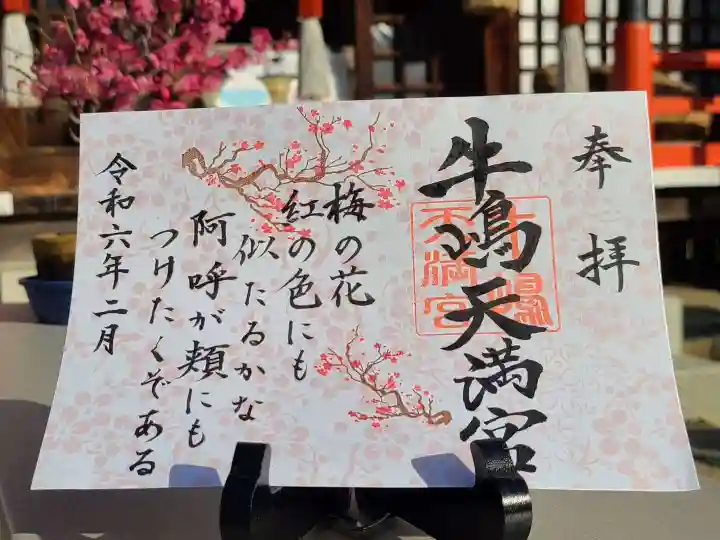 奉拝
牛嶋天満宮
牛嶋天満宮
梅の花
紅の色にも
似たるかな
阿呼が頬にも
つけたくぞある
令和六年二月